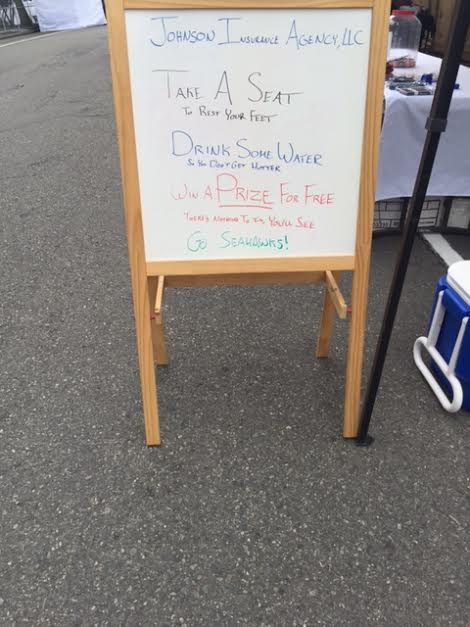 JOHNSON INSURANCE AGENCY, LLC
TAKE A SEAT
TO REST YOUR FEET
DRINK SOME WATER
SO YOU DON'T GET HOTTER
WIN A PRIZE FOR FREE
THERE'S NOTHING TO IT, YOU'LL SEE
GO SEAHAWKS!